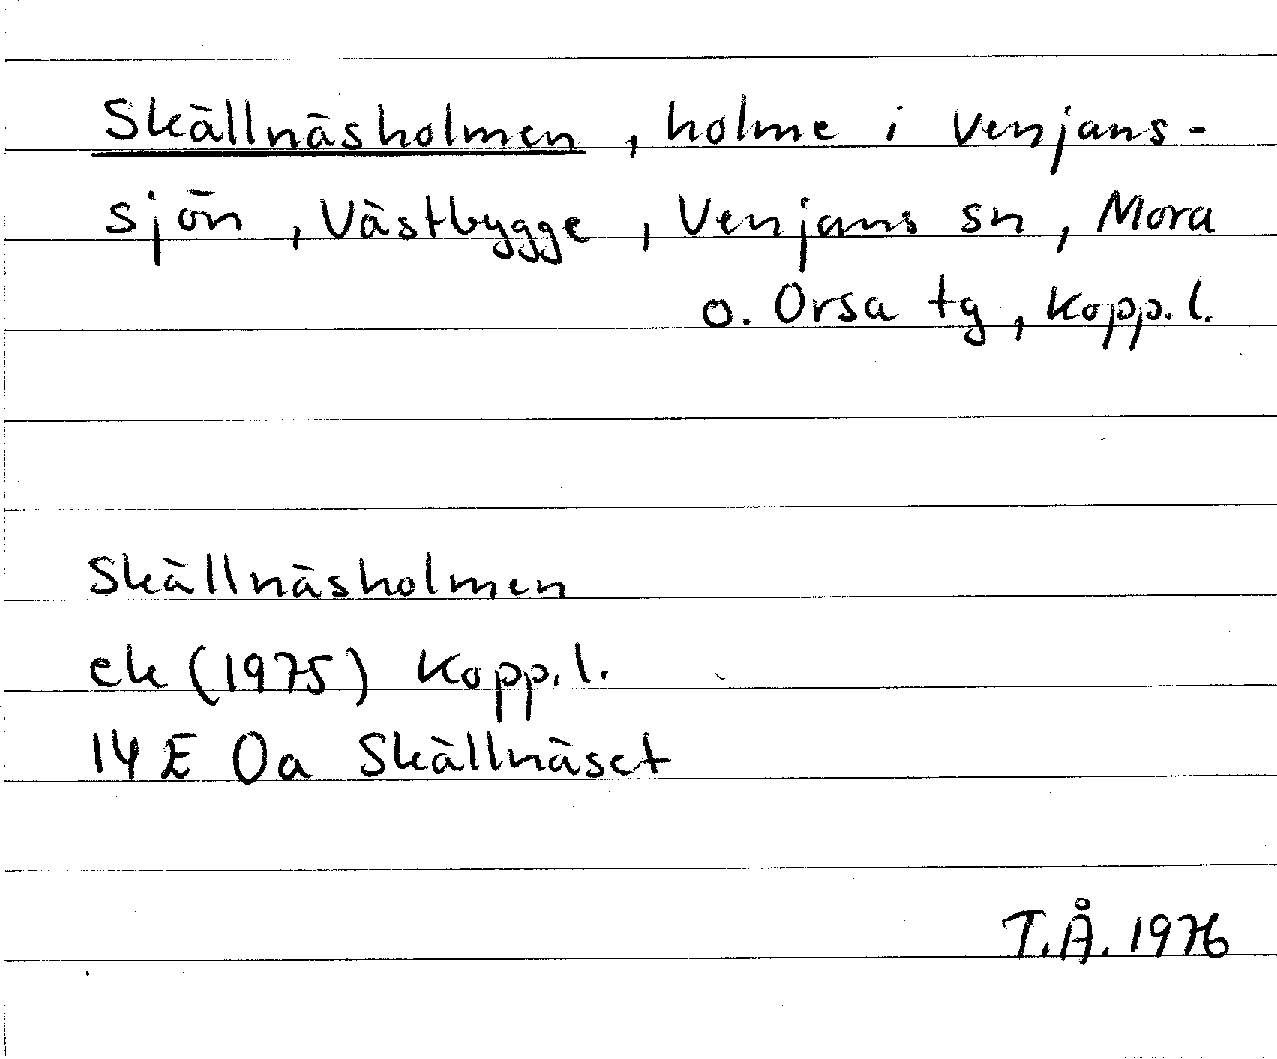 Skällnäsholmen, holme i Venjans-
sjön, Västbygge, Venjans sn, Mora
o. Orsa tg, Kopp.l.
Skällnäsholmen
ek (1975) Kopp.l.
14 E 0a Skällnäset
T.Å. 1976